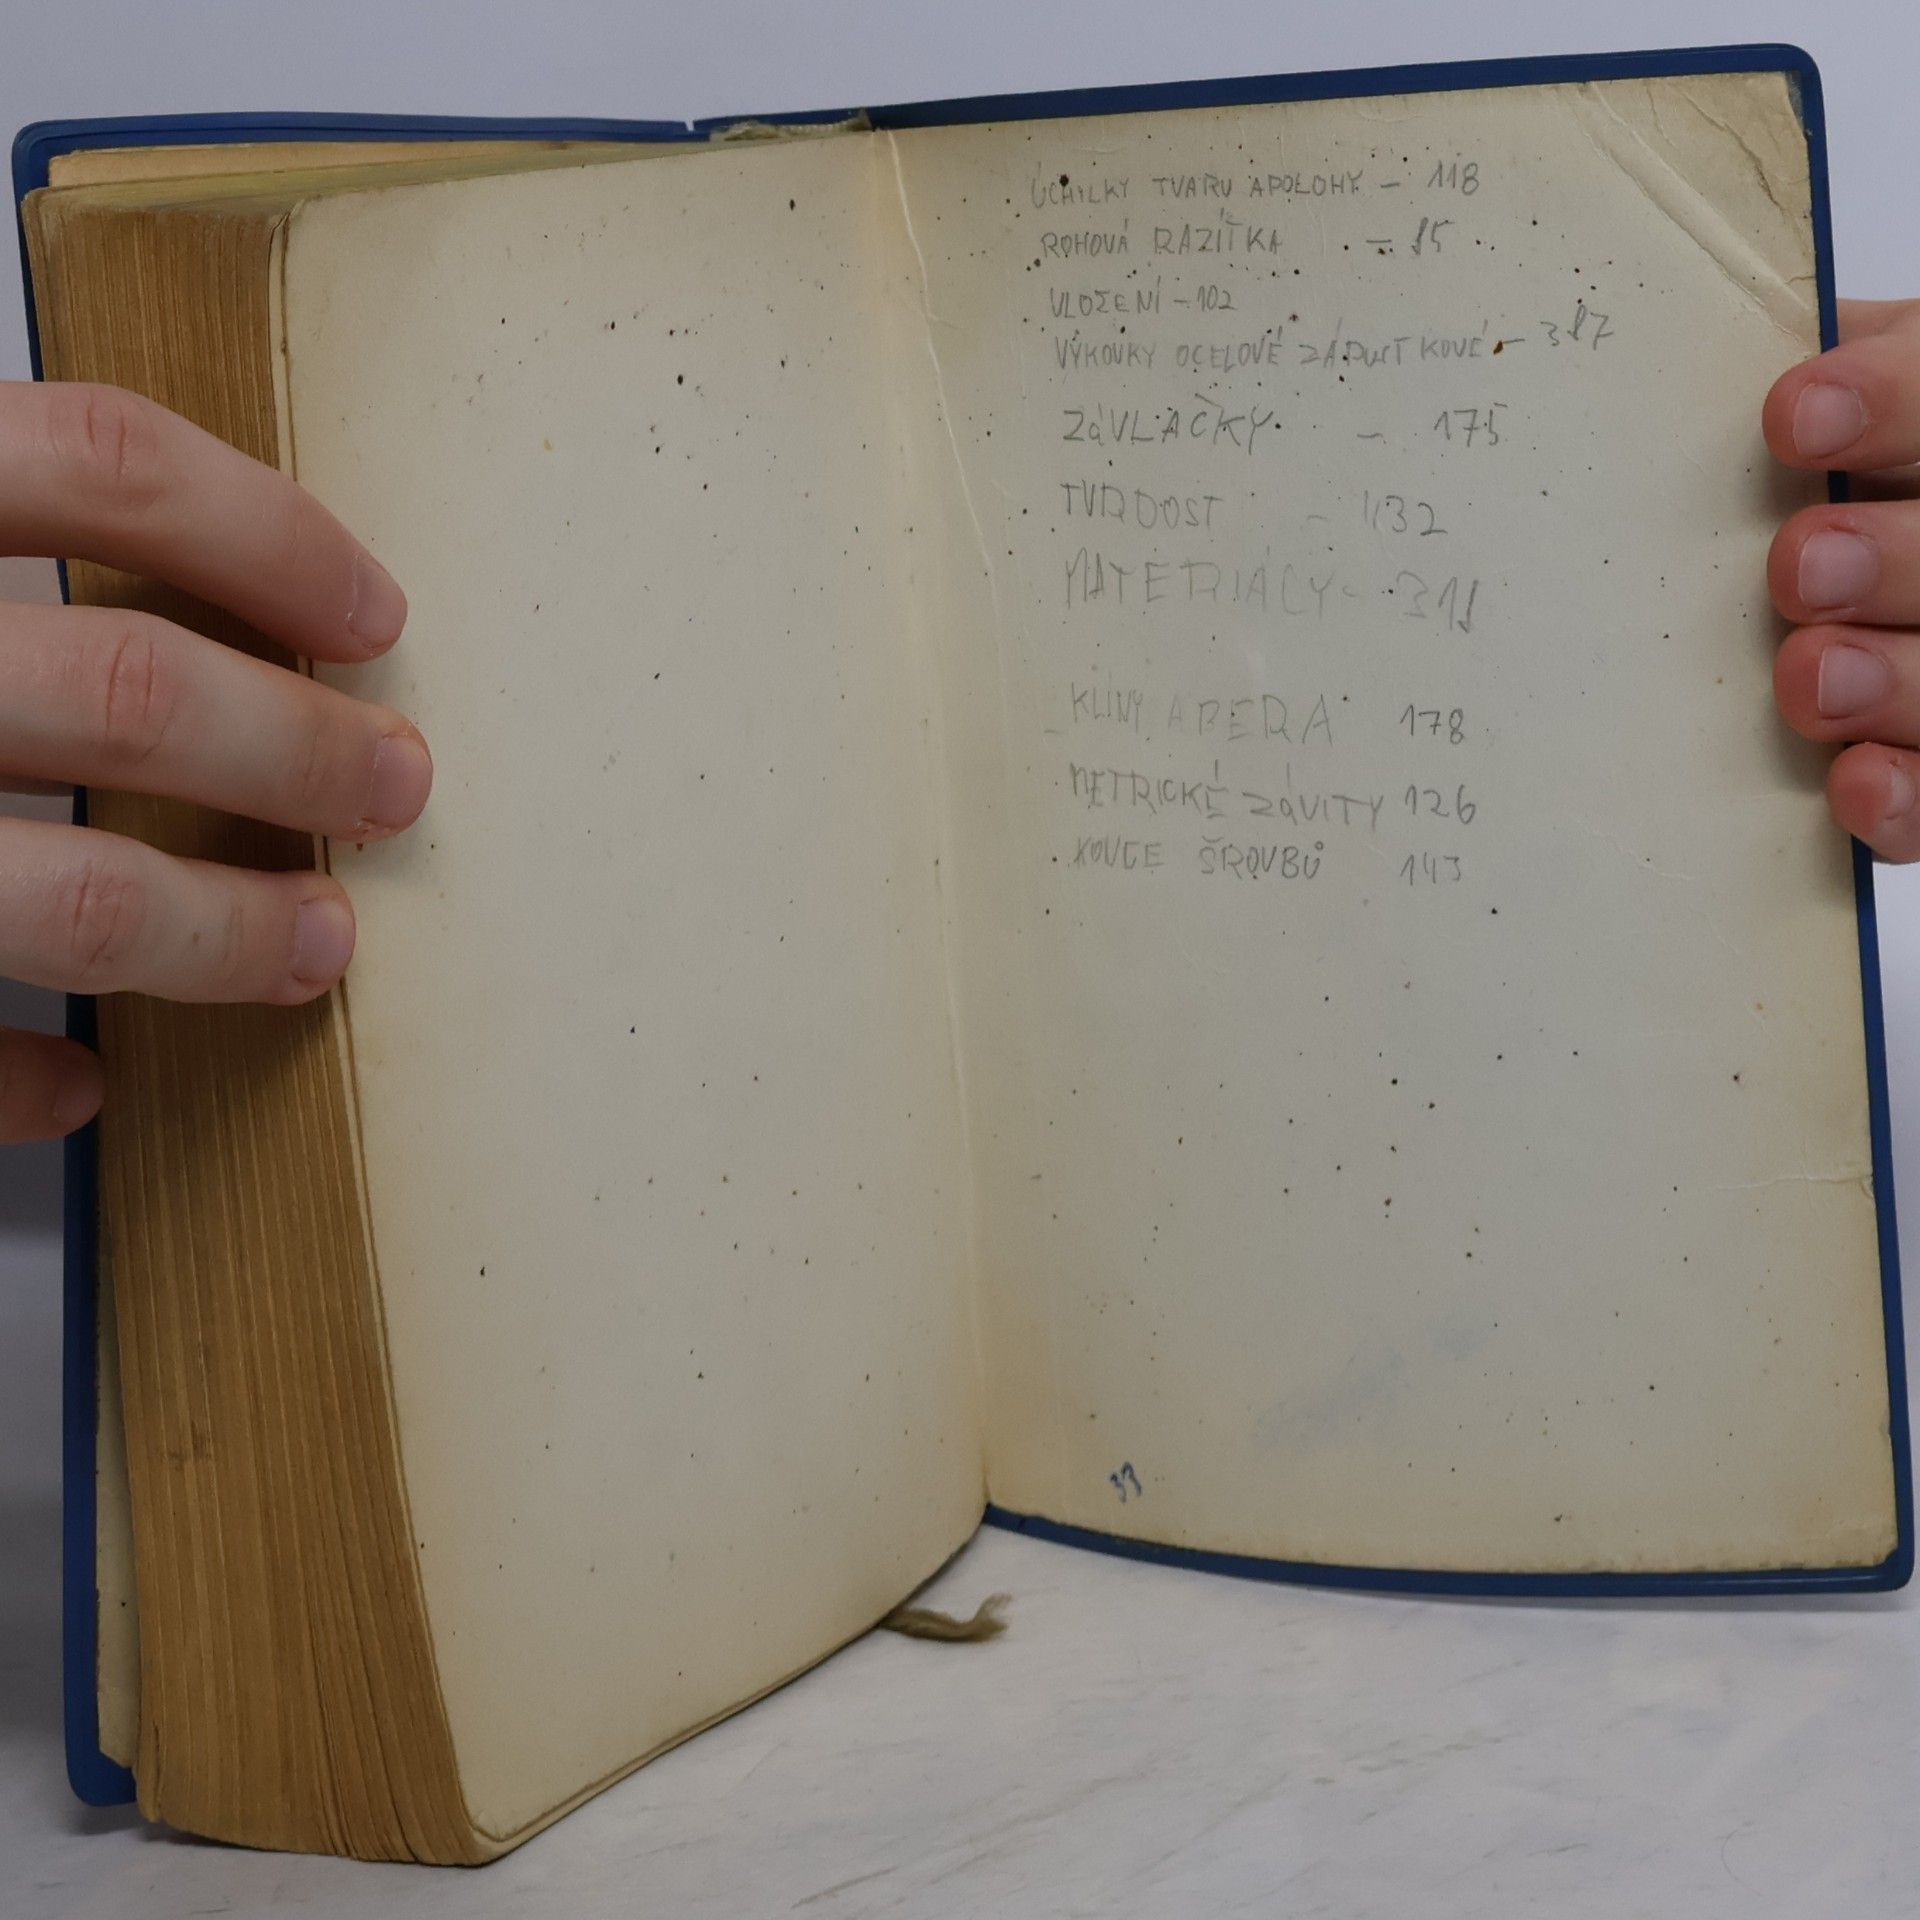 ÚCHYLKY TVARU A POLOHY - 118
ROHOVÁ RAZÍTKA - 85
ULOŽENÍ - 102
VÝKOVKY OCELOVÉ ZÁPUSTKOVÉ - 387
ZÁVLAČKY - 175
TVRDOST - 432
MATERIÁLY -
KLÍNY A PERA 178
METRICKÉ ZÁVITY 126
KONCE ŠROUBŮ 143
33